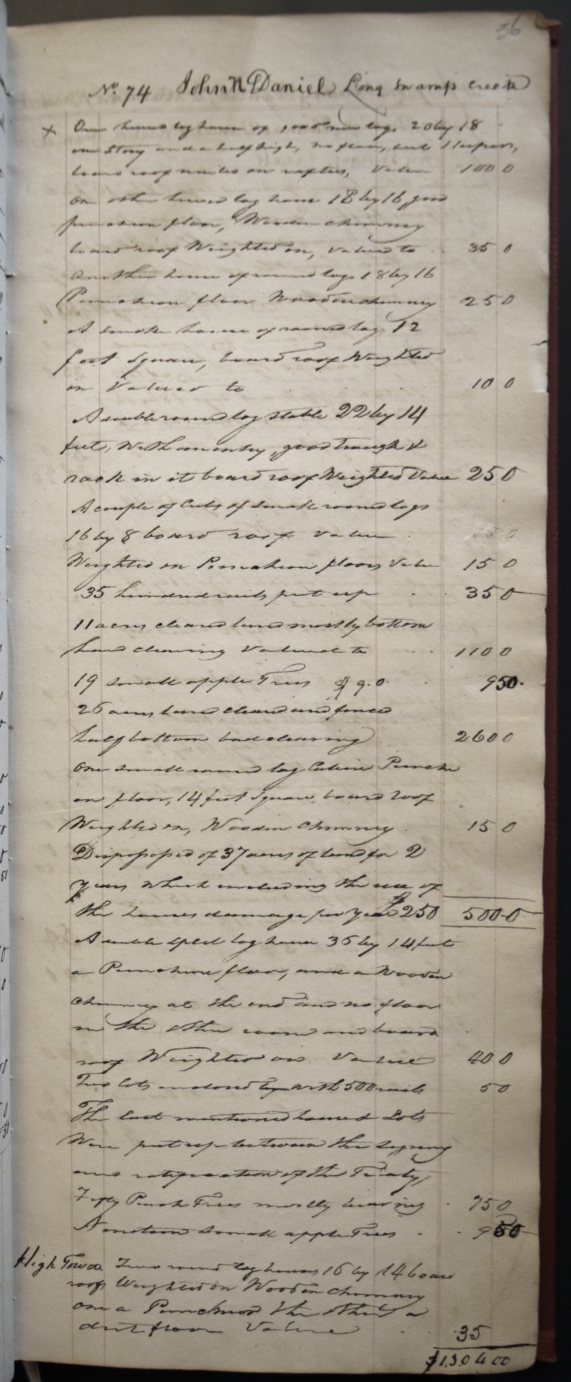 36
No. 74 John N Daniel Long Swamp Creek
x One hewed log house of good new logs 20 by 18
one Story and a half high, no floor,
board roof nailed on rafters, Value 100 0
on other hewed log house 18 by 16 good
puncheon floor, Wooden chimney
board roof Weighted on, Valued to 35 0
Another house of round logs 18 by 16
Puncheon floor Wooden chimney 25 0
A smoke house of round logs 12
foot Square, board roof Weighted
on Valued to 10 0
A double round log stable 22 by 14
feet, With good trough &
rack in it board roof Weighted Value 25 0
A couple of Cribs of small round logs
16 by 8 board roof Value
Weighted on Puncheon floors Value 15 0
35 hundred rails put up 35 0
11 acres cleared land mostly bottom
hard clearing Valued to 110 0
19 small apple Trees 950
26 acres land cleared and fenced
half bottom bad clearing 260 0
One small round log Cabin Punche
on floor, 14 feet Square board roof
Weighted on, Wooden Chimney 15 0
Dispossessed of 37 acres of land for 2
years which including the use of
the houses dammage per year $250 500 0
A double split log house 36 by 14 feet
a Puncheon floor, and a Wooden
chimney at the end and no floor
in the other room and board
roof Weighted on Value 40 0
Two lots enclosed with 500 rails 5 0
The last mentioned house & Lots
Were put up between the signing
and ratification of the Treaty,
Fifty Peach Trees mostly bearing 75 0
Nineteen small apple Trees 950
High Tower Two round log houses 16 by 14 board
roof Weighted on Wooden Chimney
one a Puncheon & the other a
dirt floor Value 35
$1304 00